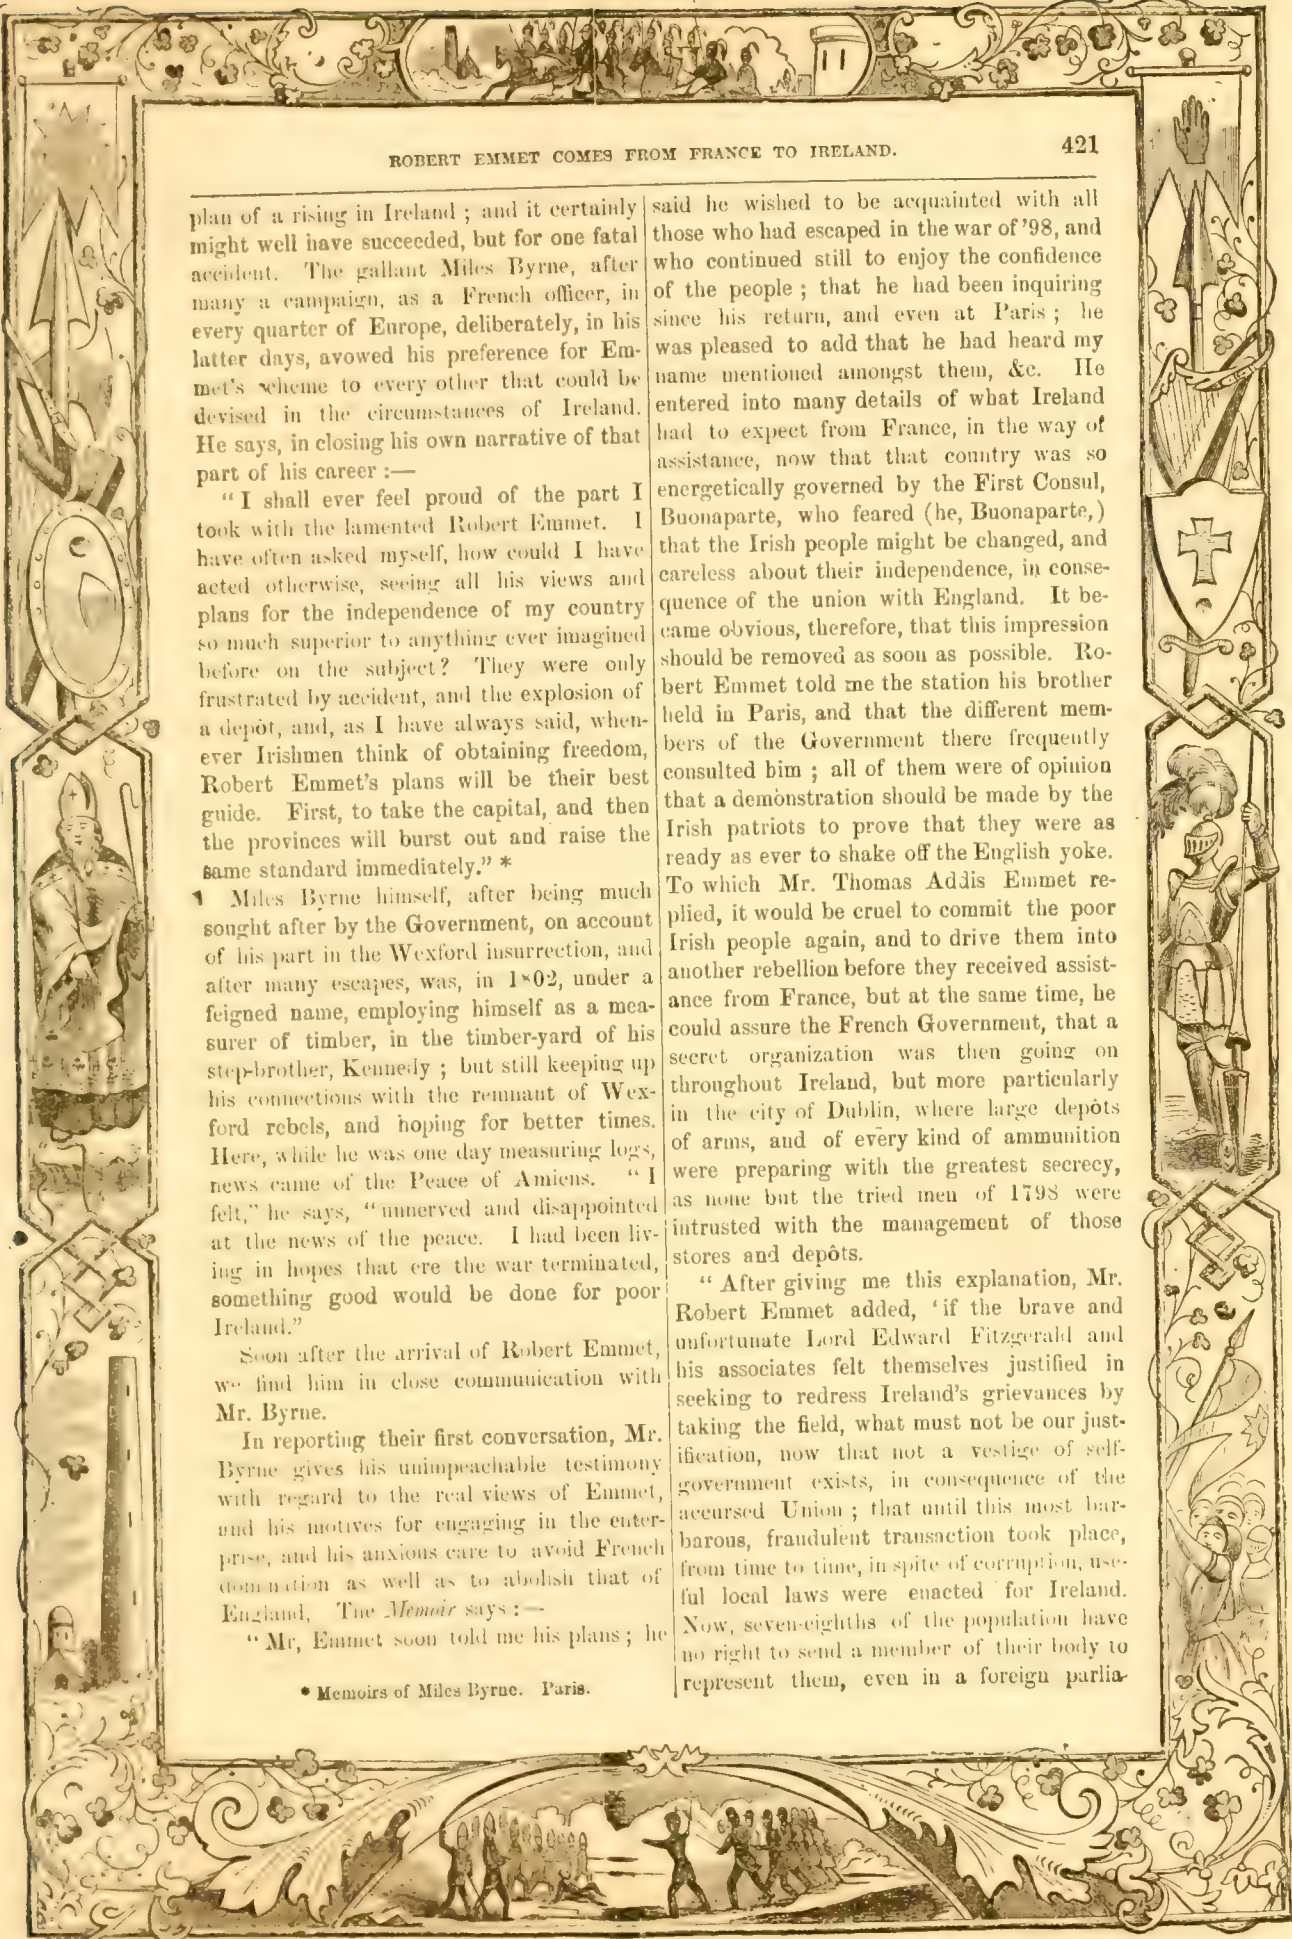 ROBERT EMMET COMES FROM FRANCE TO IRELAND.
421
plan of a rising in Ireland ; and it certainly
might well have succeeded, but for one fatal
accident. The gallant Miles Byrne, after
many a campaign, as a French officer, in
every quarter of Europe, deliberately, in his
latter days, avowed his preference for Em-
met's scheme to every other that could be
devised in the circumstances of Ireland.
He says, in closing his own narrative of that
part of his career :—
“ I shall ever feel proud of the part I
took with the lamented Robert Emmet. I
have often asked myself, how could I have
acted otherwise, seeing all his views and
plans for the independence of my country
so much superior to anything ever imagined
before on the subject? They were only
frustrated by accident, and the explosion of
a depôt, and, as I have always said, when-
ever Irishmen think of obtaining freedom,
Robert Emmet's plans will be their best
guide. First, to take the capital, and then
the provinces will burst out and raise the
same standard immediately.” *
Miles Byrne himself, after being much
sought after by the Government, on account
of his part in the Wexford insurrection, and
after many escapes, was, in 1802, under a
feigned name, employing himself as a mea-
surer of timber, in the timber-yard of his
step-brother, Kennedy ; but still keeping up
his connections with the remnant of Wex-
ford rebels, and hoping for better times.
Here, while he was one day measuring logs,
news came of the Peace of Amiens. “ I
felt,” he says, “ unnerved and disappointed
at the news of the peace. I had been liv-
ing in hopes that ere the war terminated,
something good would be done for poor
Ireland.”
Soon after the arrival of Robert Emmet,
we find him in close communication with
Mr. Byrne.
In reporting their first conversation, Mr.
Byrne gives his unimpeachable testimony
with regard to the real views of Emmet,
and his motives for engaging in the enter-
prise, and his anxious care to avoid French
domination as well as to abolish that of
England, The Memoir says :—
“ Mr, Emmet soon told me his plans ; he
* Memoirs of Miles Byrne. Paris.
said he wished to be acquainted with all
those who had escaped in the war of '98, and
who continued still to enjoy the confidence
of the people ; that he had been inquiring
since his return, and even at Paris ; he
was pleased to add that he had heard my
name mentioned amongst them, &c. He
entered into many details of what Ireland
had to expect from France, in the way of
assistance, now that that country was so
energetically governed by the First Consul,
Buonaparte, who feared (he, Buonaparte,)
that the Irish people might be changed, and
careless about their independence, in conse-
quence of the union with England. It be-
came obvious, therefore, that this impression
should be removed as soon as possible. Ro-
bert Emmet told me the station his brother
held in Paris, and that the different mem-
bers of the Government there frequently
consulted him ; all of them were of opinion
that a demonstration should be made by the
Irish patriots to prove that they were as
ready as ever to shake off the English yoke.
To which Mr. Thomas Addis Emmet re-
plied, it would be cruel to commit the poor
Irish people again, and to drive them into
another rebellion before they received assist-
ance from France, but at the same time, he
could assure the French Government, that a
secret organization was then going on
throughout Ireland, but more particularly
in the city of Dublin, where large depôts
of arms, and of every kind of ammunition
were preparing with the greatest secrecy,
as none but the tried men of 1798 were
intrusted with the management of those
stores and depôts.
“ After giving me this explanation, Mr.
Robert Emmet added, ‘ if the brave and
unfortunate Lord Edward Fitzgerald and
his associates felt themselves justified in
seeking to redress Ireland's grievances by
taking the field, what must not be our just-
ification, now that not a vestige of self-
government exists, in consequence of the
accursed Union ; that until this most bar-
barous, fraudulent transaction took place,
from time to time, in spite of corruption, use-
ful local laws were enacted for Ireland.
Now, seven-eighths of the population have
no right to send a member of their body to
represent them, even in a foreign parlia-